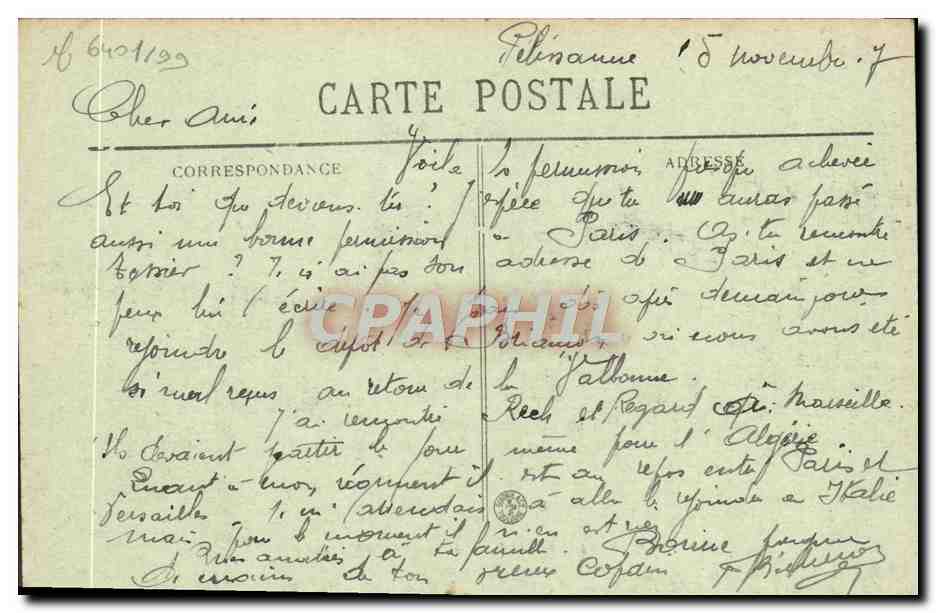 6401/99
Pelissanne 15 novembre 17
CARTE POSTALE
Cher Ami
CORRESPONDANCE
ADRESSE
Voila la permission presque achevée
Et toi que deviens-tu? J'espère que tu auras passé
aussi une bonne permission à Paris. As-tu rencontré
Tessier? Je n'ai pas son adresse de Paris et ne
peux lui écrire. Je pars après demain
rejoindre le dépôt de où nous avons été
si mal reçus au retour de la Valbonne.
J'ai rencontré Rech et Regard à Marseille.
Ils devaient partir le jour même pour l'Algérie
Quant à mon régiment il est au repos entre Paris et
Versailles. Je m'attendais à aller le rejoindre en Italie
mais pour le moment il n'en est rien. Bonne
Mes amitiés à ta famille.
de mains de ton vieux Copain
CPAPHIL